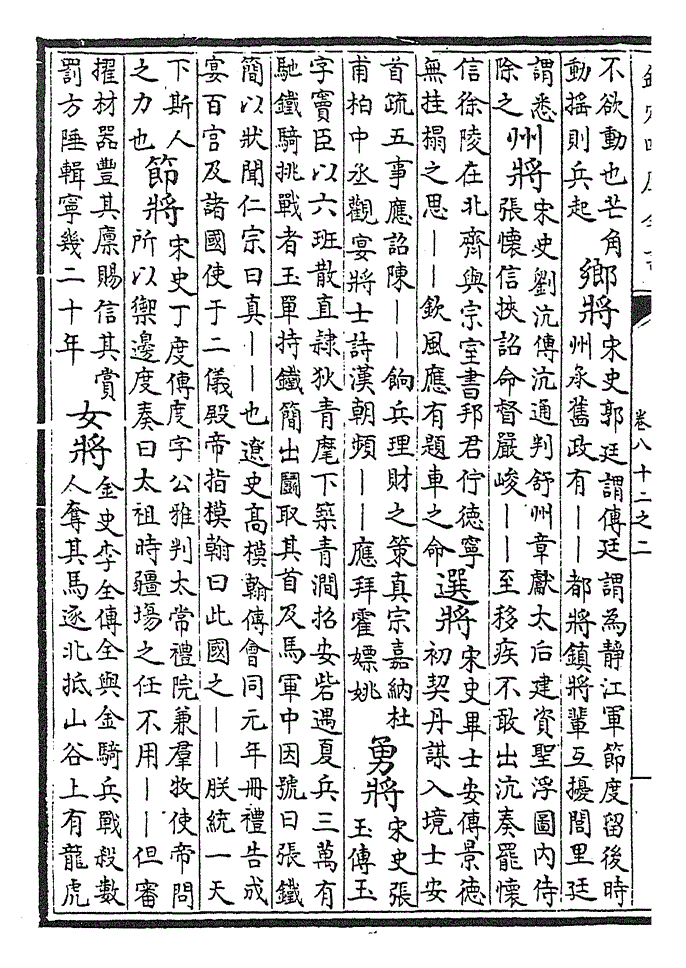 卷八十二之二
不欲動也芒角
動搖則兵起
鄉將
宋史郭廷謂傳廷謂為静江軍節度留後時
州承舊政有——都將鎮將輩互擾閭里廷
謂悉
除之
州將
宋史劉沆傳沆通判舒州章獻太后建資聖浮圖内侍
張懷信挾詔命督嚴峻——至移疾不敢出沆奏罷懷
信徐陵在北齊與宗室書邦君行德寧
無挂搨之思——欽風應有題車之命
選將
宋史畢士安傳景德
初契丹謀入境士安
首疏五事應詔陳——餉兵理財之策真宗嘉納杜
甫柏中丞觀宴將士詩漢朝頻——應拜霍嫖姚
勇將
宋史張
玉傳玉
字寳臣以六班散直隷狄青麾下築青澗招安砦遇夏兵三萬有
馳鐵騎挑戰者玉單持鐵簡出鬬取其首及馬軍中因號曰張鐵
簡以狀聞仁宗曰真——也遼史高模翰傳會同元年冊禮告成
宴百官及諸國使于二儀殿帝指模翰曰此國之——朕統一天
下斯人
之力也
節將
宋史丁度傳度字公雅判太常禮院兼羣牧使帝問
所以禦邊度奏曰太祖時疆埸之任不用——但審
擢材器豐其廪賜信其賞
罰方陲輯寧幾二十年
女將
金史李全傳全與金騎兵戰殺數
人奪其馬逐北抵山谷上有龍虎